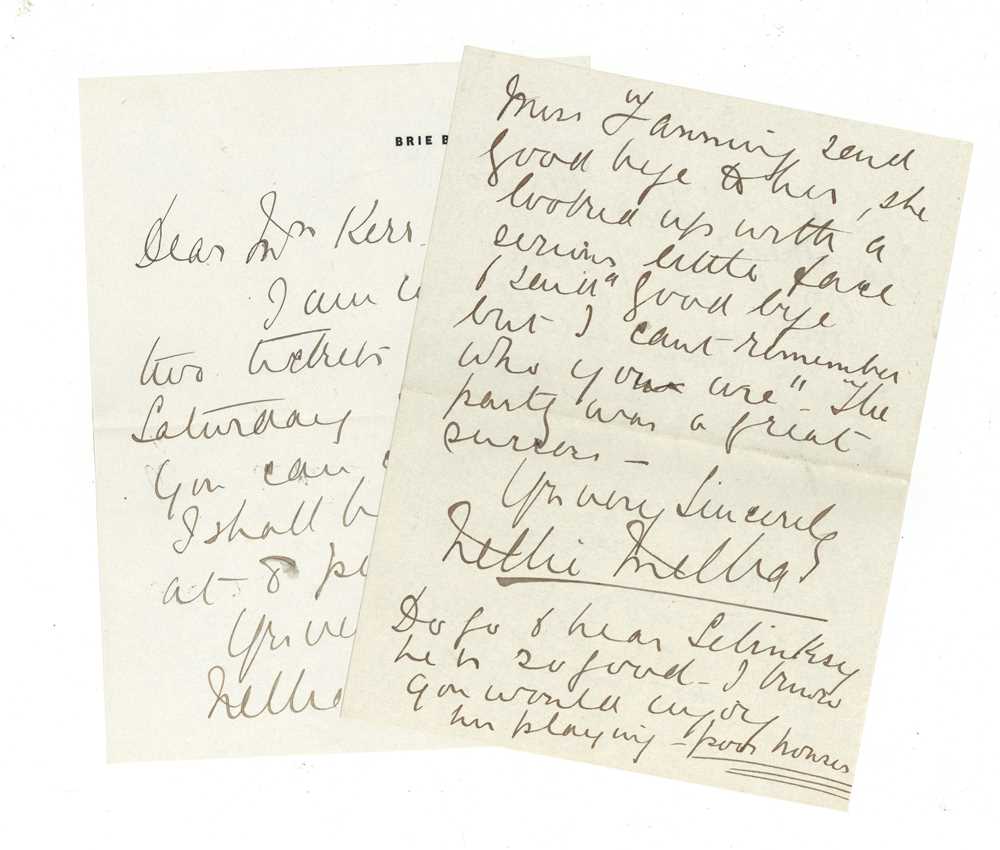 BRIE B
Dear Mrs Kerr -
I am
two tickets
Saturday
You can
I shall h
at 8 pl
Yrs ve
Melba
Miss Fanning send
good bye to her, she
looked up with a
serious little face
& said "good bye
but I cant remember
who you are" - The
party was a great
success -
Yrs very Sincerely
Nellie Melba
Do go & hear Selinksy
he is so good - I know
you would enjoy
his playing - poor houses